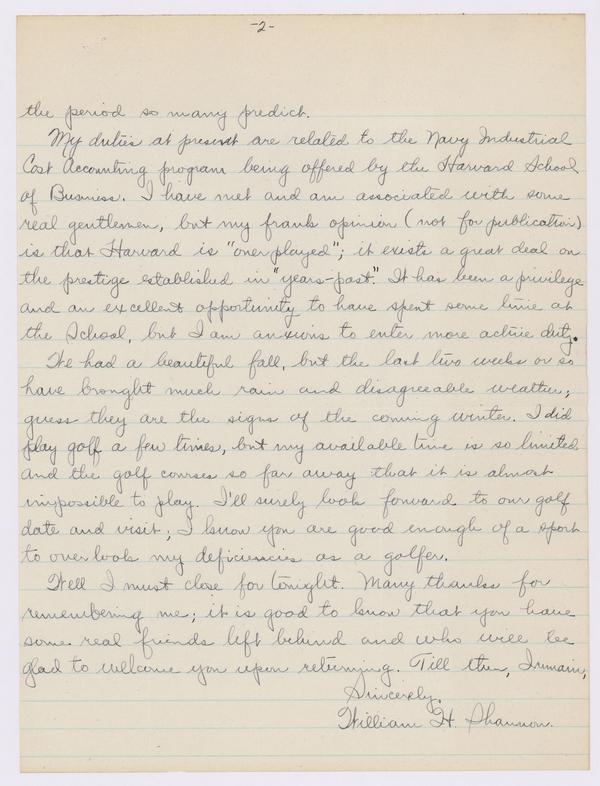 -2-
the period so many predict.
My duties at present are related to the Navy Industrial
Cost Accounting program being offered by the Harvard School
of Business. I have met and am associated with some
real gentlemen, but my frank opinion (not for publication)
is that Harvard is "over played"; it exists a great deal on
the prestige established in "years-past." It has been a privilege
and an excellent opportunity to have spent some time at
the School, but I am anxious to enter more active duty.
We had a beautiful fall, but the last two weeks or so
have brought much rain and disagreeable weather;
guess they are the signs of the coming winter. I did
play golf a few times, but my available time is so limited
and the golf courses so far away that it is almost
impossible to play. I'll surely look forward to our golf
date and visit; I know you are good enough of a sport
to overlook my deficiencies as a golfer.
Well I must close for tonight. Many thanks for
remembering me; it is good to know that you have
some real friends left behind and who will be
glad to welcome you upon returning. Till then, I remain,
Sincerely,
William H. Shannon.